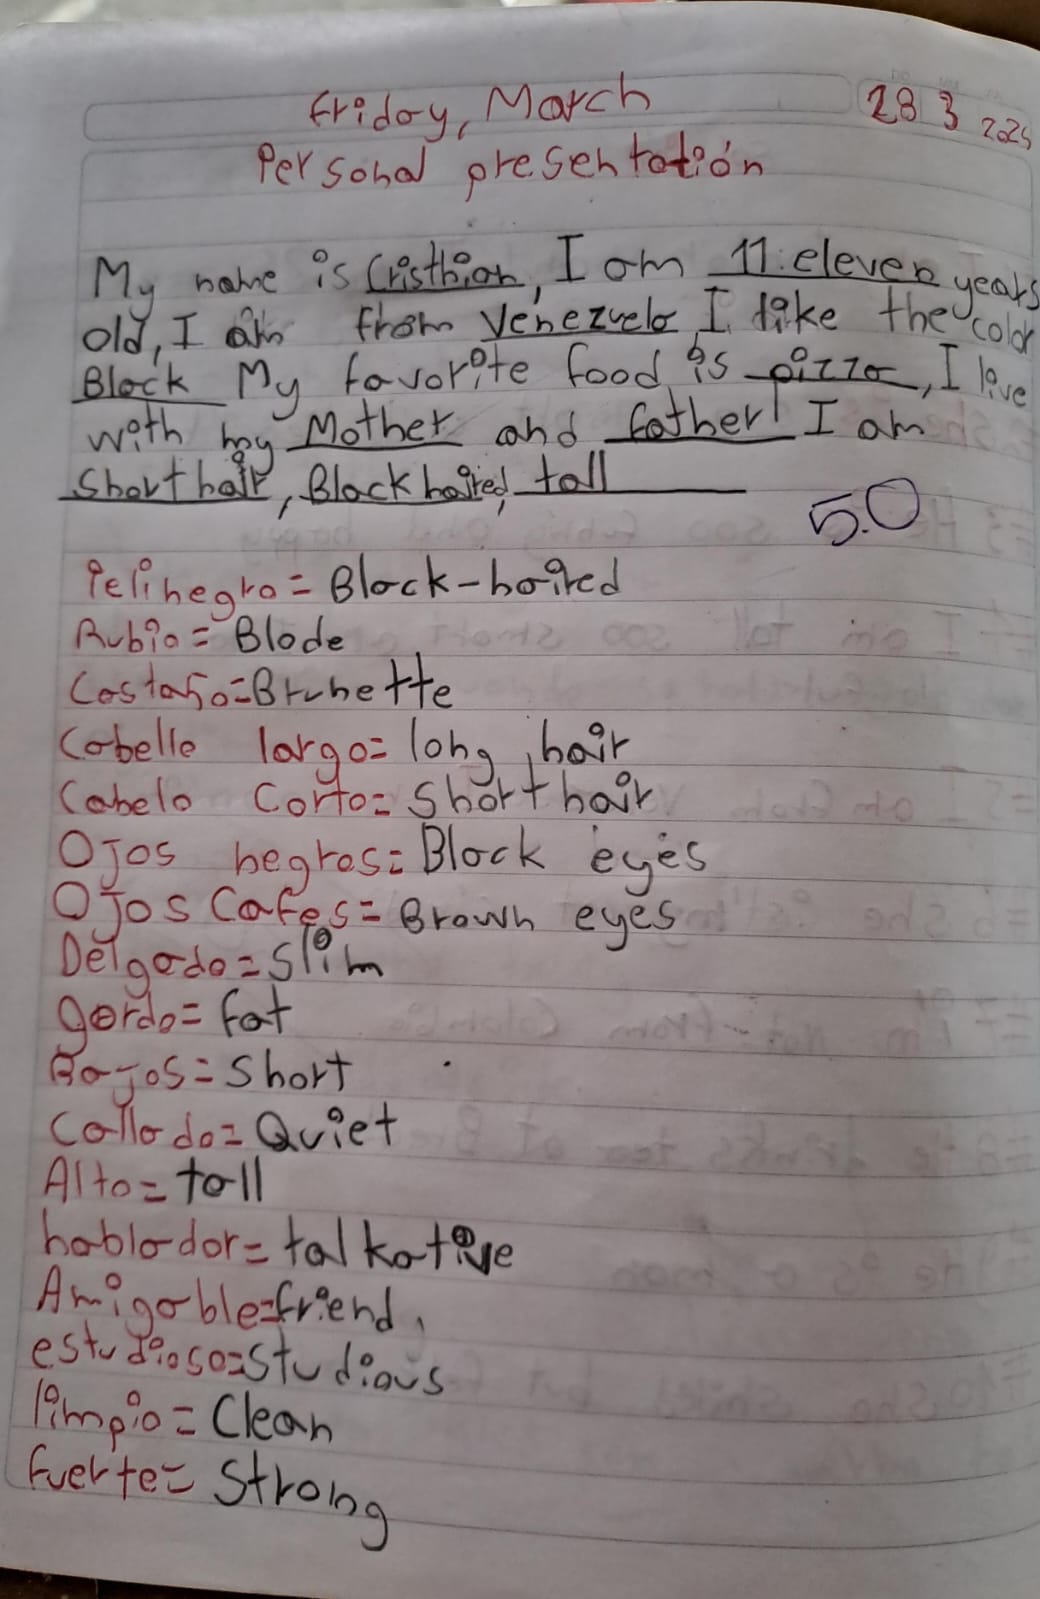 Friday, March 28 3 2025
Personal presentatión
My name is Cristhian, I am 11:eleven years
old, I am from Venezuela I like the color
Black My favorite food is pizza, I live
with my Mother and father I am
Short hair, Black haired, tall
5.0
Pelinegro = Black-haired
Rubio = Blode
Castaño = Brunette
Cabello largo = long hair
Cabelo Corto = Short hair
Ojos negros = Black eyes
Ojos Cafes = Brown eyes
Delgado = Slim
gordo = fat
Bajos = Short
Callado = Quiet
Alto = tall
hablador = talkative
Amigable = friend,
estudioso = Studious
limpio = Clean
fuerte = Strong